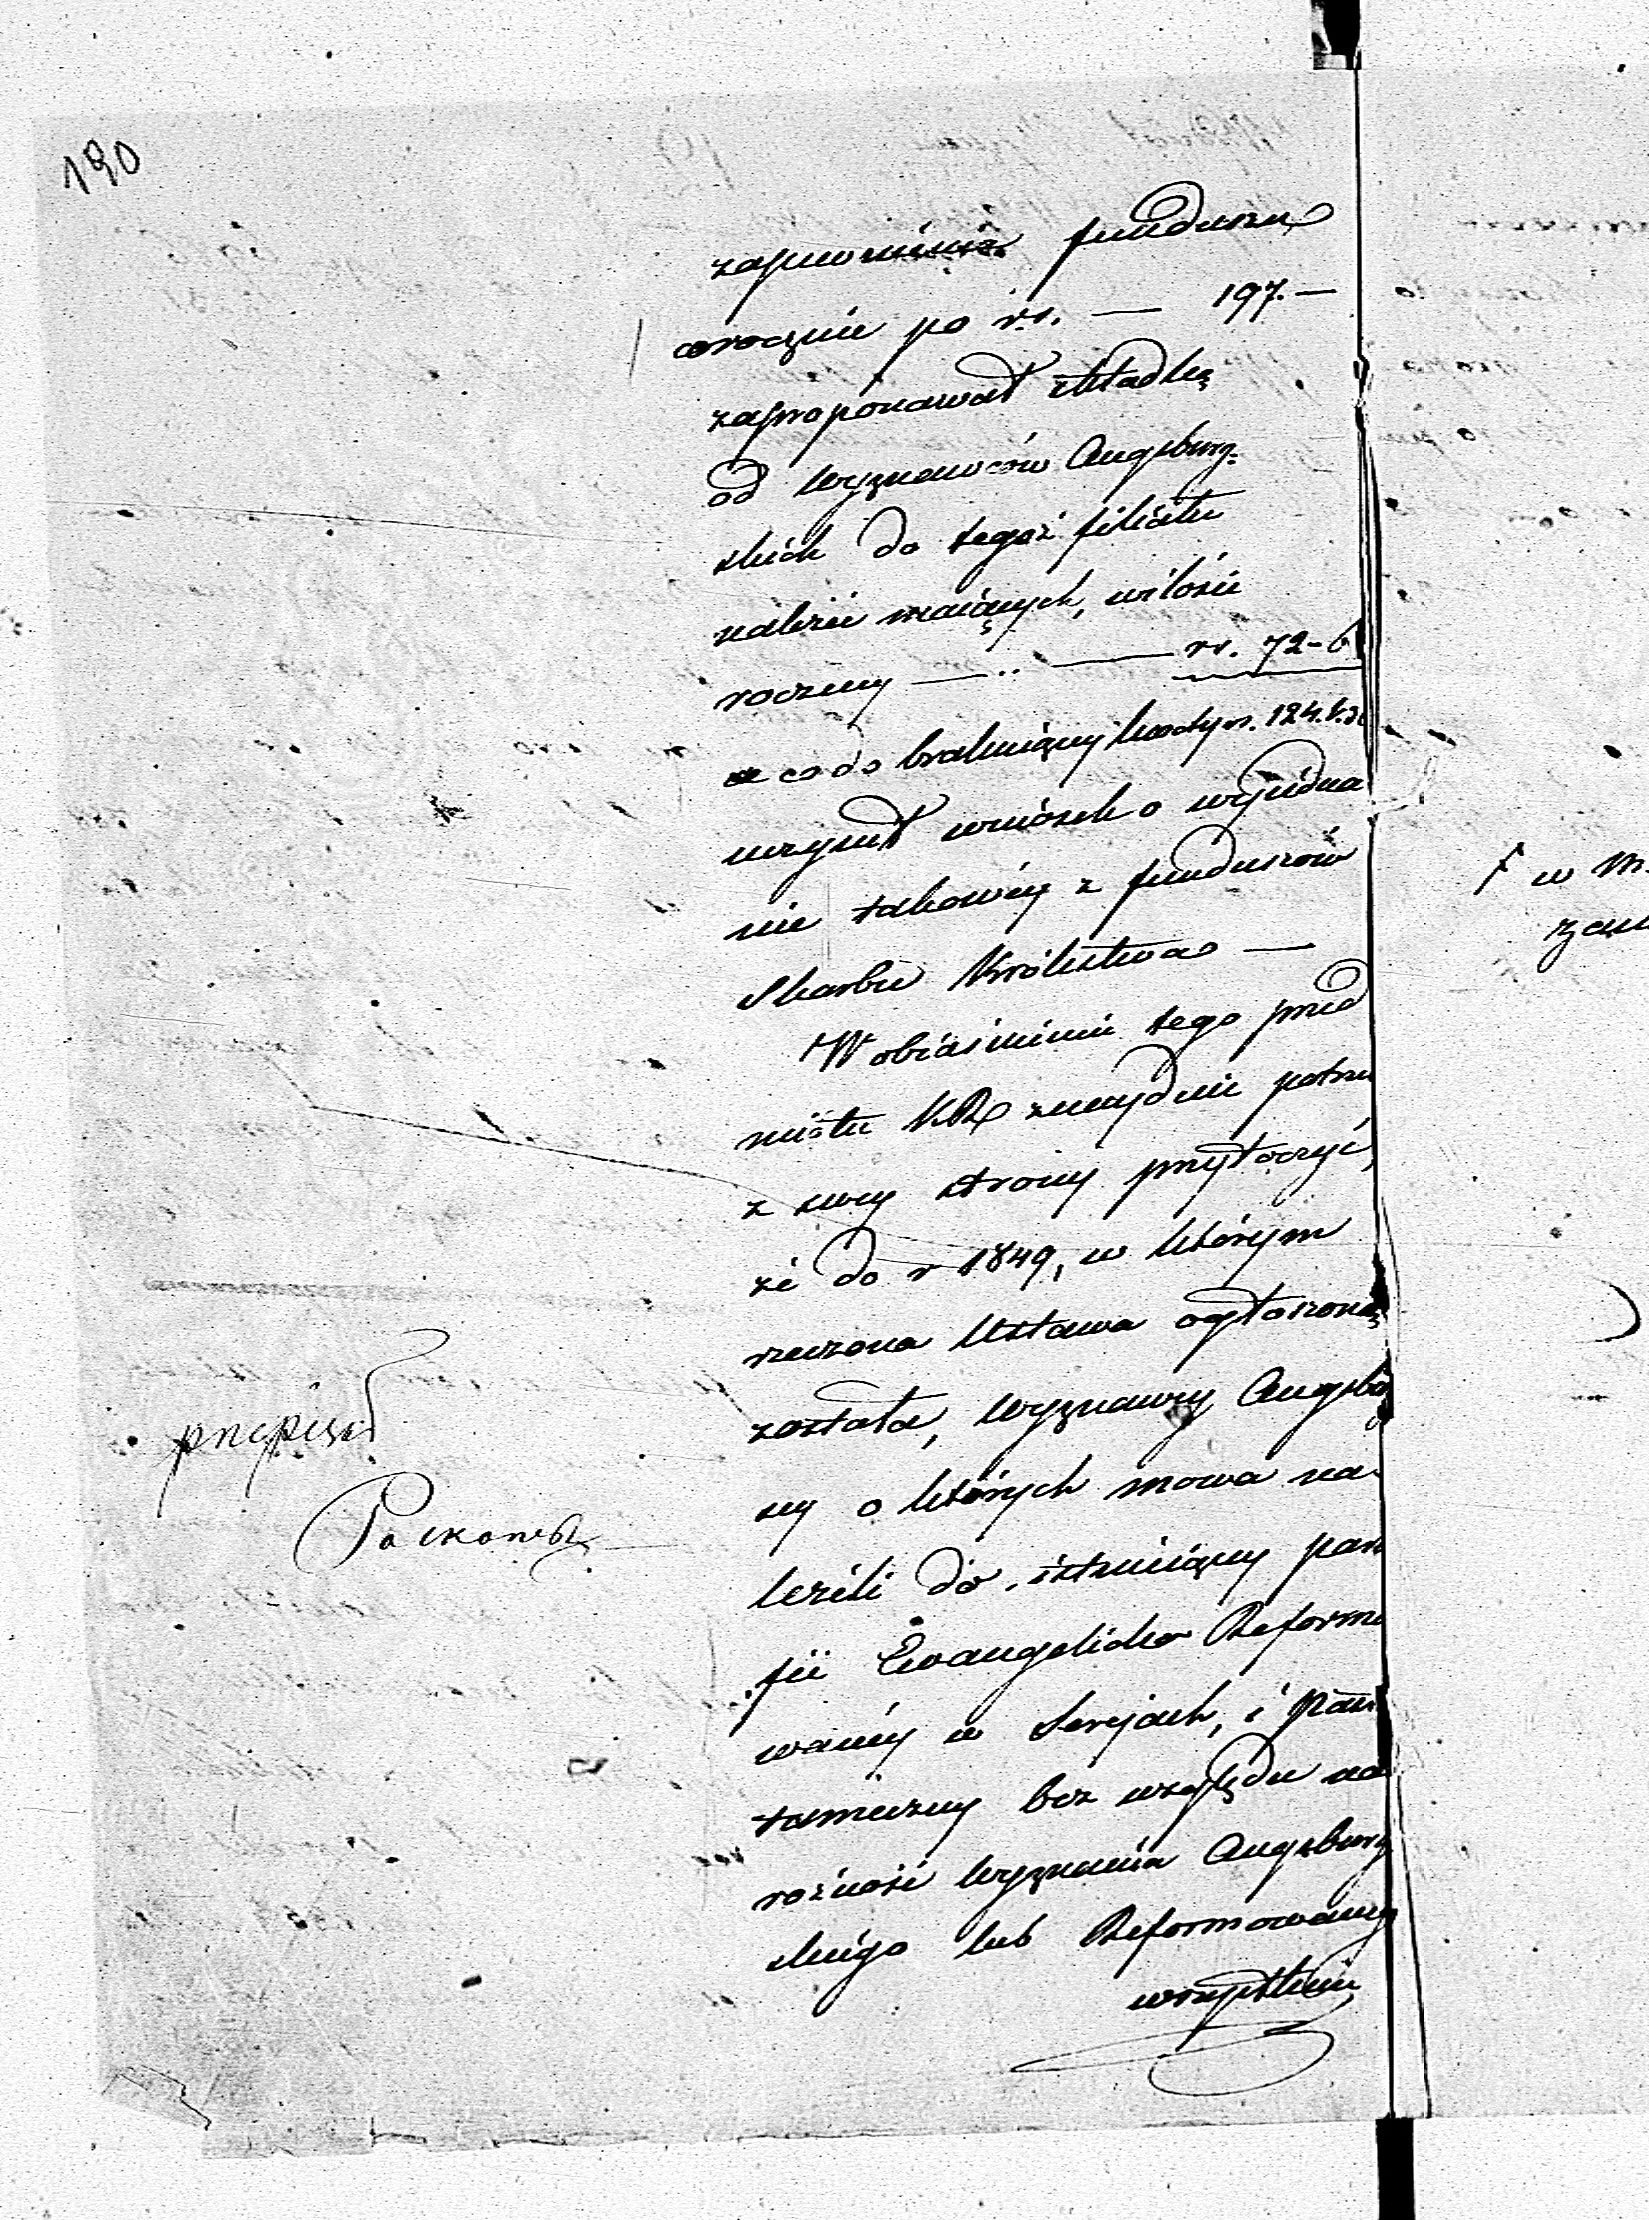 190
zapewnienia funduszu
corocznie po rs. — 197. —
zaproponował składkę
od wyznawców Augsburg-
skich do tegoż filiału
należeć maiących, w ilości
roczney — .. — rs. 72-6
co do brakuiącey kwoty rs. 124. k. 3
uczynił wniosek o wyiedna
nie takowey z funduszów
Skarbu Królestwa —
W obiaśnieniu tego przed
miotu KR znayduie potrze
z swey strony przytoczyć,
że do r 1849, w którym
rzeczona Ustawa ogłoszoną
została, wyznawcy Augsbu
scy o których mowa na-
leżeli do istnieiącey para
fii Ewangelicko Reformo
waney w Serejach, i Pastor
tameczny bez względu na
rożność wyznania Augsburg
skiego lub Reformowaneg
wszystkim
przepisał
w